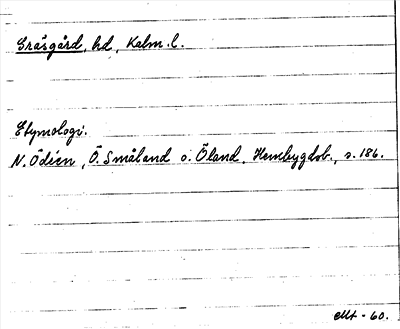 Gräsgård, hd, Kalm. l.
Etymologi.
N. Ödeen, Ö. Småland o. Öland. Hembygdsb., s. 186.
EMt - 60.